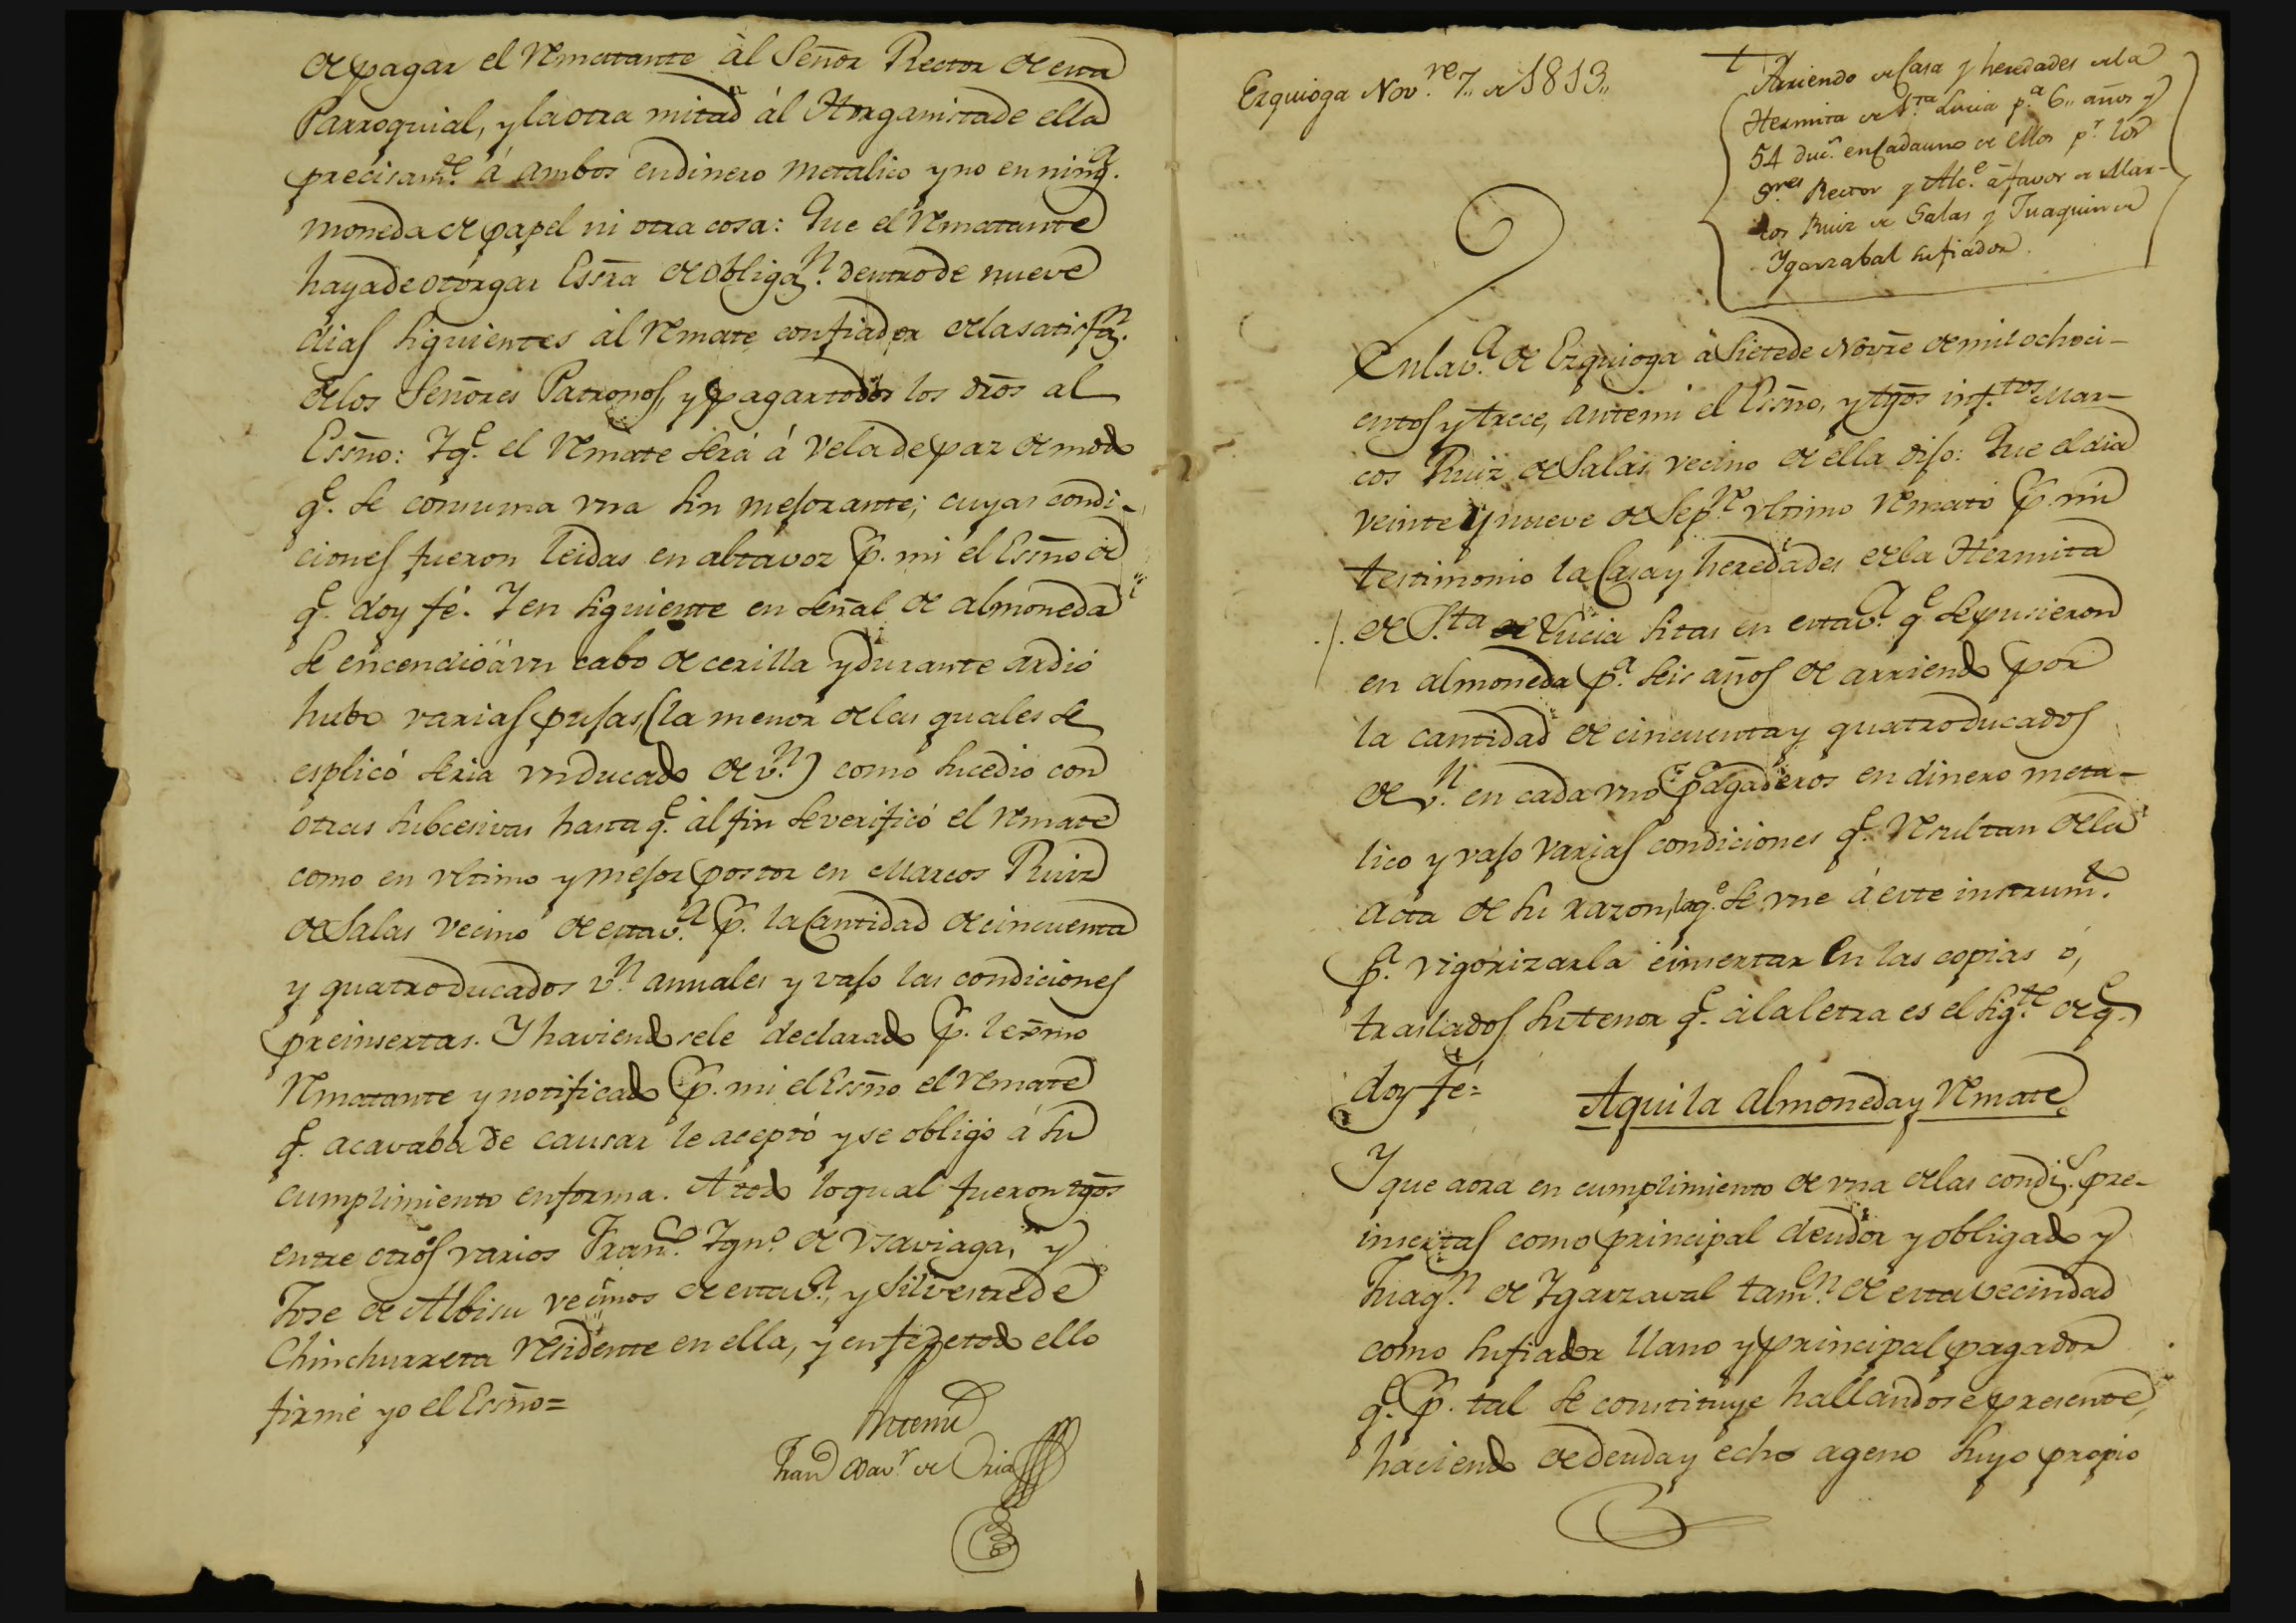 de pagar el Rematante àl Señor Rector de esta
Parroquial, y la otra mitad àl Organista de ella
precisam.te á ambos en dinero metalico y no en ning.a
moneda de papel ni otra cosa: Que el Rematante
haya de otorgar Essra de obligaz.n dentro de nueve
dias siguientes àl Remate con fiador de la satisfaz.n
de los Señores Patronos, y pagar todos los dros al
Essno: Y q.e el Remate será á vela de paz de modo
q.e se consuma vna sin mejorante; cuyas condi-
ciones fueron leidas en alta voz p. mi el Essno de
q.e doy fé. Y en siguiente en señal de almoneda
se encendiò à vn cabo de cerilla y durante ardió
hubo varias pujas, (la menor de las quales se
esplicó seria vn ducado de v.n) como sucedio con
otras subcesivas hasta q.e àl fin se verificó el Remate
como en vltimo y mejor postor en Marcos Ruiz
de Salas vecino de esta v.a p. la Cantidad de cincuenta
y quatro ducados v.n annuales y vajo las condiciones
preinsertas. Y haviendosele declarado p. lexmo
Rematante y notificado p. mi el Essno el Remate
q.e acavaba de causar le aceptó y se obligó á su
cumplimiento en forma. A todo lo qual fueron tgos
entre otros varios Fran.co Ygn.o de Vsaviaga, y
Jose de Albisu vecinos de esta v.a, y Silvestre de
Chinchurreta Residente en ella, y en fe de todo ello
firmé yo el Essno=
Antemi
Fran.co Xav.r de Oria
Ezquioga Nov.re 7,, de 1813,,
Arriendo de Casa y heredades de la
Hermita de S.ta Lucia p.a 6,, años y
54 duc.s en cada uno de ellos p.r los
S.res Rector y Alc.e à favor de Mar-
cos Ruiz de Salas y Juaquin de
Ygarzabal su fiador.
En la v.a de Ezquioga à siete de Novre de mil ochoci-
entos y trece, ante mi el Essno, y tgos inf.tos Mar-
cos Ruiz de Salas vecino de ella dijo: Que el dia
veinte y nueve de Sep.re vltimo Remató p. mi
testimonio la Casa y heredades de la Hermita
de S.ta Lucia sitas en esta v.a q.e se pusieron
en almoneda p.a seis años de arriendo por
la cantidad de cincuenta y quatro ducados
de v.n en cada vno pagaderos en dinero meta-
lico y vajo varias condiciones q.e Resultan de la
acta de su razon, la q.e se vne á este instrum.to
p.a vigorizarla è insertar en las copias ó,
traslados su tenor q.e à la letra es el sig.te de q.e
doy fé=
Aqui la Almoneda y Remate
Y que aora en cumplimiento de vna de las condiz.s pre-
insertas como principal deudor y obligado y
Juaq.n de Ygarzaval tamv.n de esta vecindad
como su fiador llano y principal pagador
q.e p. tal se constituye hallandose presente,
haciendo de deuda y echo ageno suyo propio